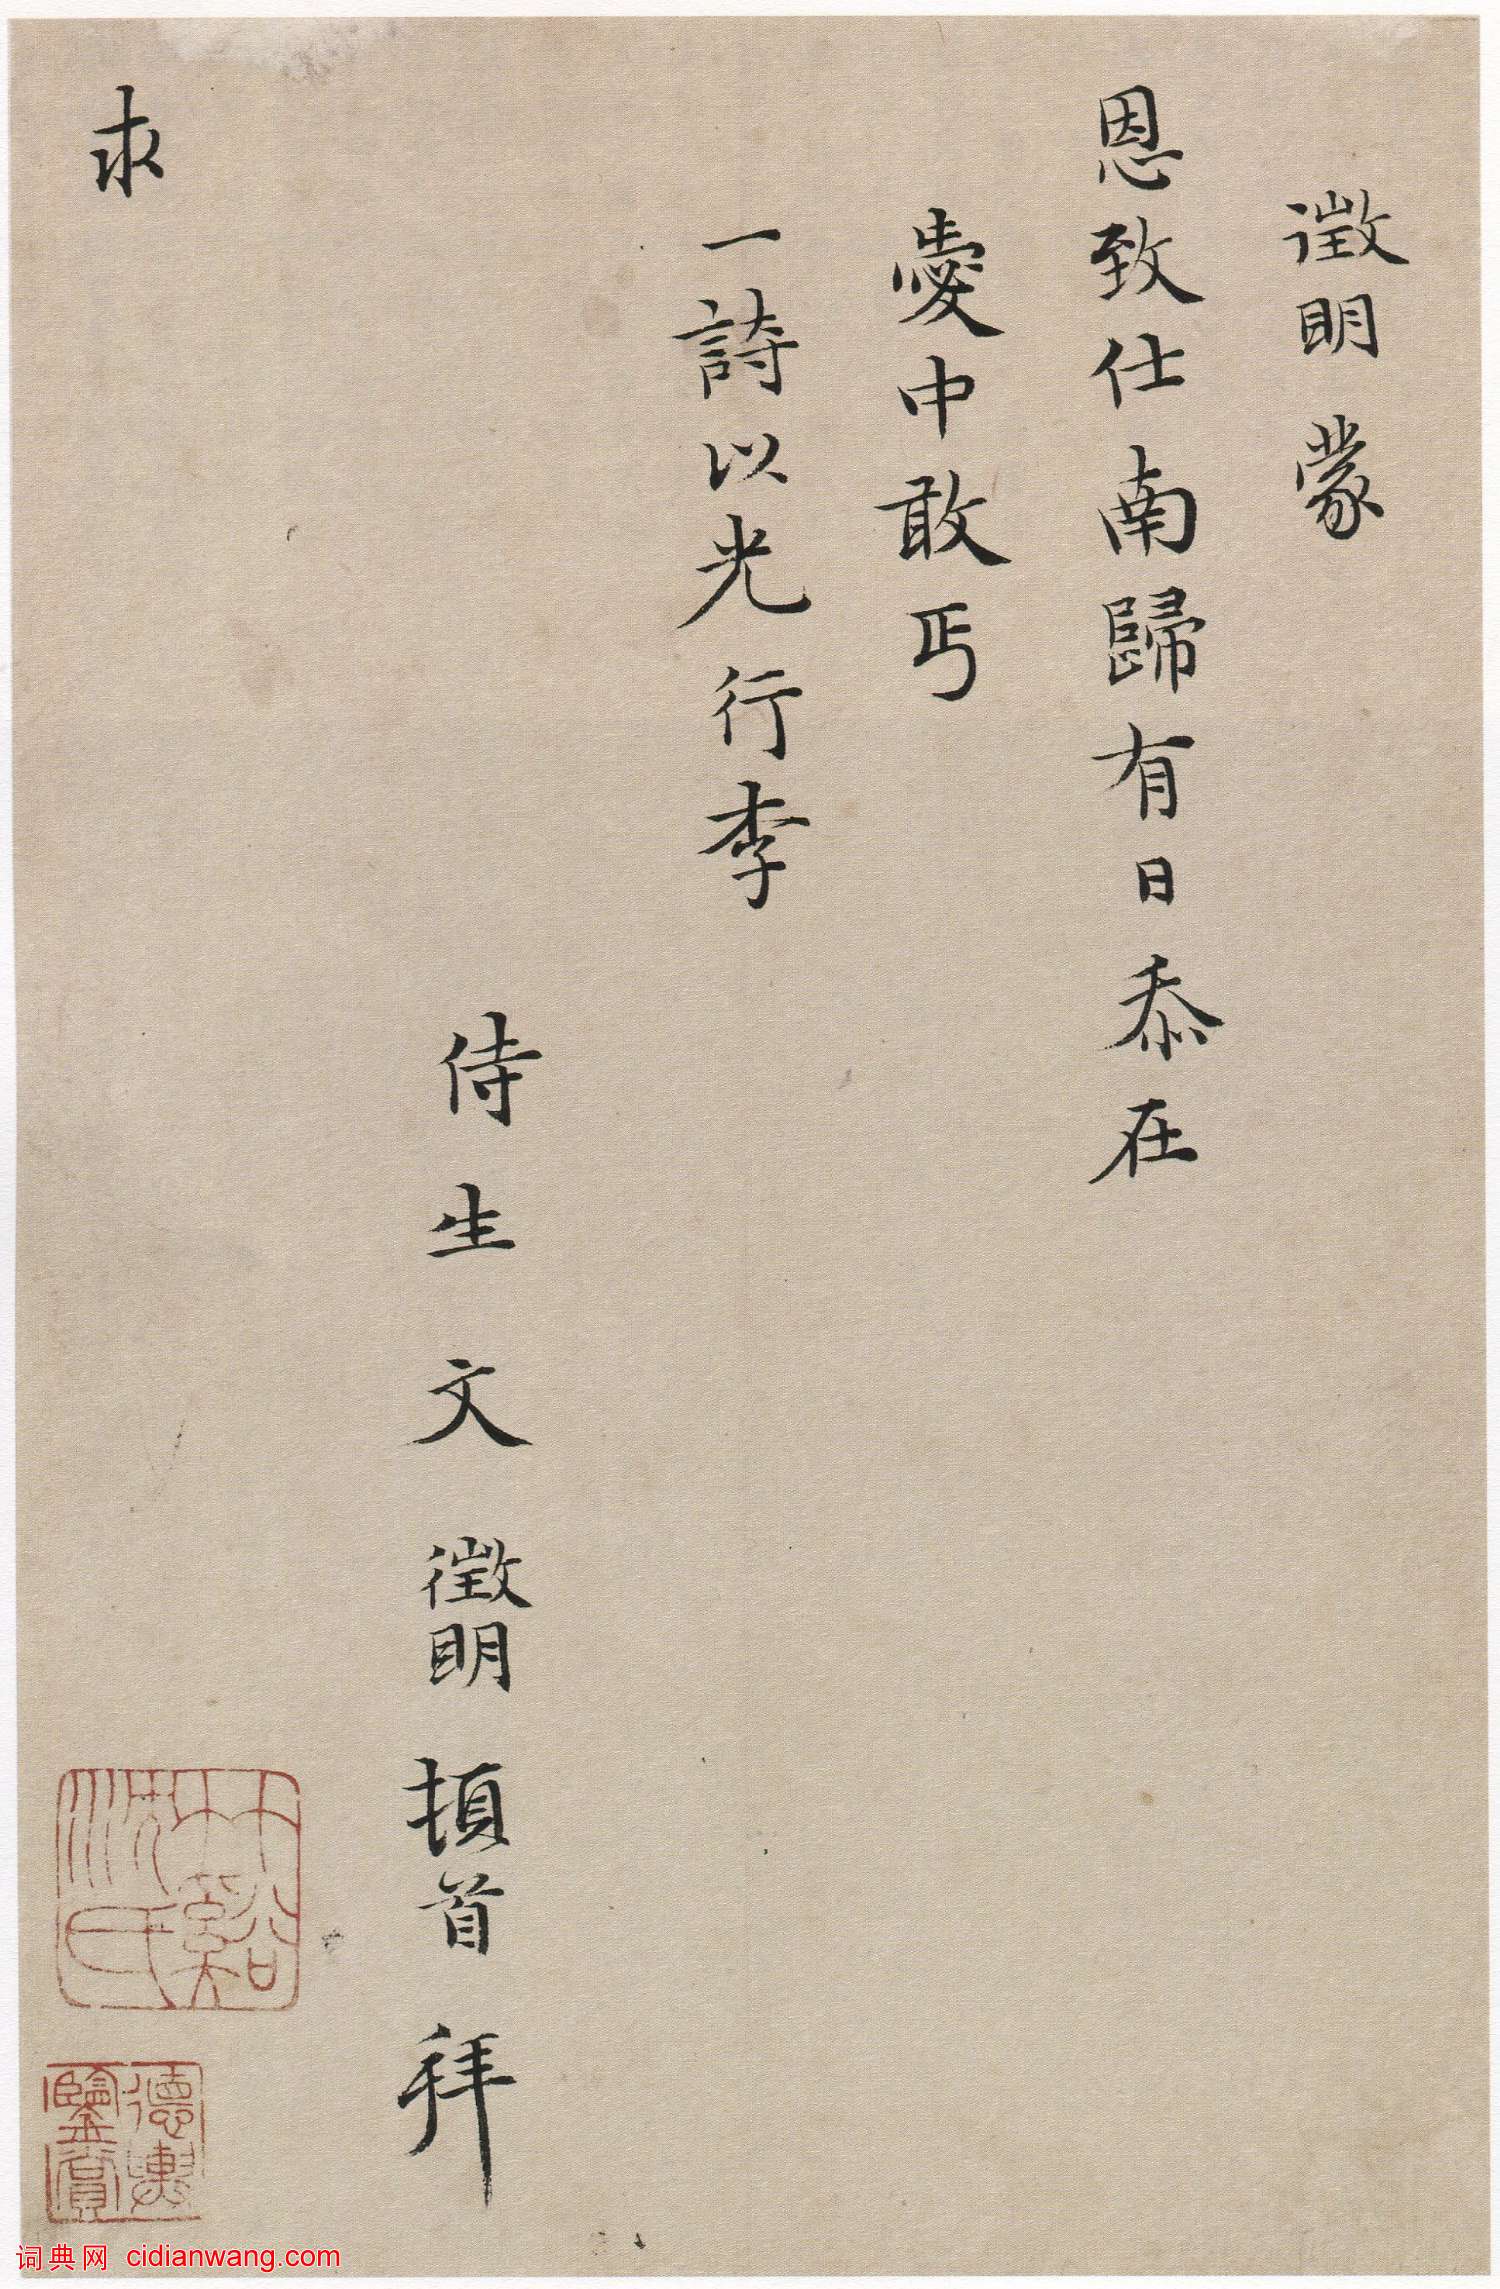 徵明蒙
恩致仕南歸有日忝在
愛中敢丐
一詩以光行李
侍生文徵明頓首拜
求
沈氏
德輿
鑒賞
词典网 cidianwang.com